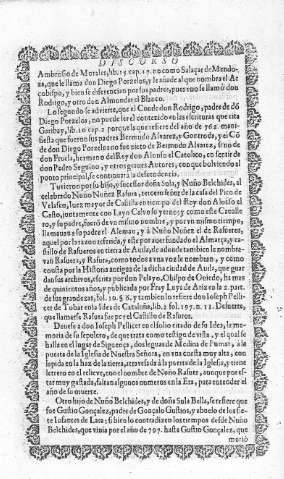 DISCURSO
Ambrosio de Morales, lib. 13. cap. 19. no como Salaçar de Mendo-
ça, que le llama don Diego Porzelos, y le añade al que nombra el Ar
cobispo, y bien se diferencian por sus padres, pues vno se llamó don
Rodrigo, y otro don Almondar el Blanco.
Lo segundo se aduierte, que el Conde don Rodrigo, padre de dō
Diego Porzelos, no puede ser el contenido en las escrituras que cita
Garibay, lib. 10. cap. 2. por q̃ la que refiere del año de 762. mani-
fiesta que fueron sus padres Bermudo Aluarez, y
de don Diego Porzelos no fue nieto de Bermudo Aluarez, sino de
don Fruela, hermano del Rey don Alonso el Catolico, en sentir de
don Pedro Seguino, y otros graues Autores, con que boluiendo al
punto principal, se continuará la decendencia.
Tuuieron por su hijo, y sucessor doña Sula, y Nuño Belchides, al
celebrado Nuño Nuñez Rasura, tercero señor de la casa del Pino de
Velasco, Iuez mayor de Castilla en tiempo del Rey don Alonso el
Casto, juntamente con Layn Caluo su yerno; y como este
y su padre, fueron de vn mismo nombre, y por vn mismo tiempo,
llamauan a su padre el Aleman, y á Nuño Nuñez el de Rasueros,
aquel por la razon referida, y este por auer fundado el
tillo de Rasueros en tierra de Auila, de adonde tambien le nombra-
uan Rasuera, y Rasura, como todos a vna voz le nombran, y como
consta por la Historia antigua de la dicha ciudad de Auila, que guar
dan sus archiuos, escrita por don Pelayo, Obispo de Ouiedo, ha mas
de quatrocientos años, y publicada por Fray Luys de Ariz en la 2. part.
de sus grandezas, fol. 10. §. 6. y tambien lo refiere don Ioseph Pellicer
de Tobar en la Idea de Cataluña, lib. 2. fol. 197. n. 12. De suerte,
que llamarse Rasura fue por el Castillo de Rasueros.
Deuese a don Ioseph Pellicer en el folio citado de su Idea, la me-
moria de su sepulcro, de que trata como testigo de vista, y el qual se
halla en el lugar de Siguença, dos leguas de Medina de Pumar, á la
puerta de la Iglesia de Nuestra Señora, en vna cuesta muy alta, con
lapida en la haz de la tierra, atrauessada á la puerta de la Iglesia, y tienen
letrero en el reliere, con el nombre de Nuño Rasure, aunque por es-
tar muy gastada, faltan algunos numeros en la Era, para entender el
año de su muerte.
Otro hijo de Nuño Belchides, y de doña Sula Bella, se refiere que
fue Gustio Gonçalez, padre de Gonçalo Gustios, y abuelo de los sie-
te Infantes de Lara; si bien lo contradizen los tiempos desde Nuño
Belchides, que viuia por el año de 797. hasta Gustio Gonçalez, que
murió